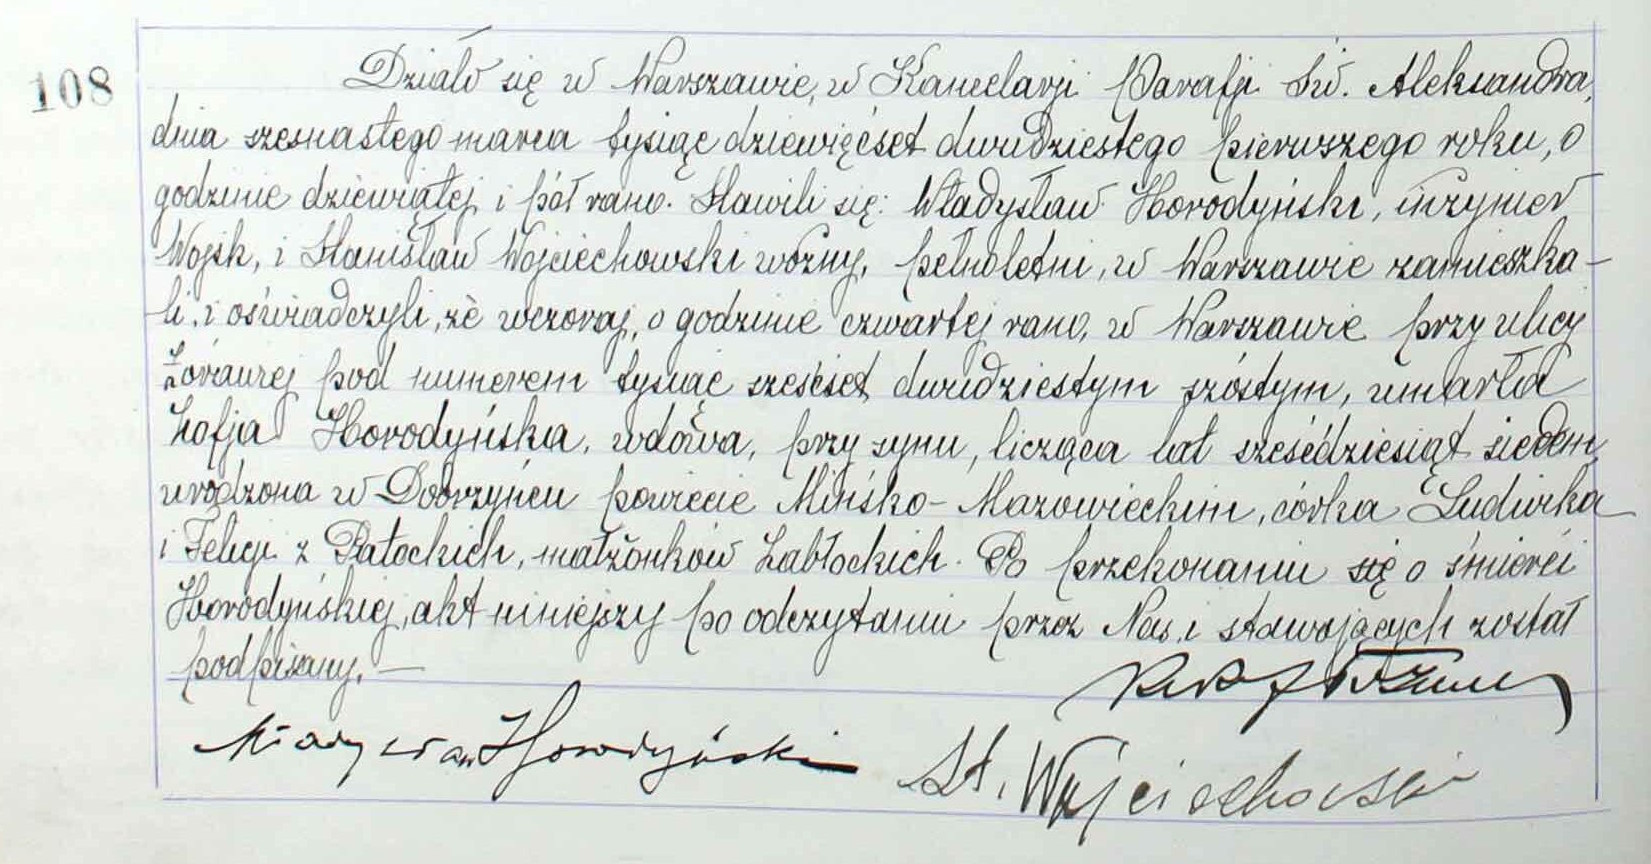 108
Działo się w Warszawie, w Kancelarji Parafji Św. Aleksandra,
dnia szesnastego marca tysiąc dziewięćset dwudziestego pierwszego roku, o
godzinie dziewiątej i pół rano. Stawili się: Władysław Horodyński, inżynier
Wojsk, i Stanisław Wojciechowski woźny, pełnoletni, w Warszawie zamieszka-
li, i oświadczyli, że wczoraj, o godzinie czwartej rano, w Warszawie przy ulicy
Żórawiej pod numerem tysiąc sześćset dwudziestym szóstym, umarła
Zofja Horodyńska, wdowa, przy synu, licząca lat sześćdziesiąt siedem,
urodzona w Dobrzyńcu powiecie Mińsko-Mazowieckim, córka Ludwika
i Felicji z Rałockich, małżonków Zabłockich. Po przekonaniu się o śmierci
Horodyńskiej, akt niniejszy po odczytaniu przez Nas i stawających został
podpisany. —
Władysław Horodyński
St. Wojciechowski